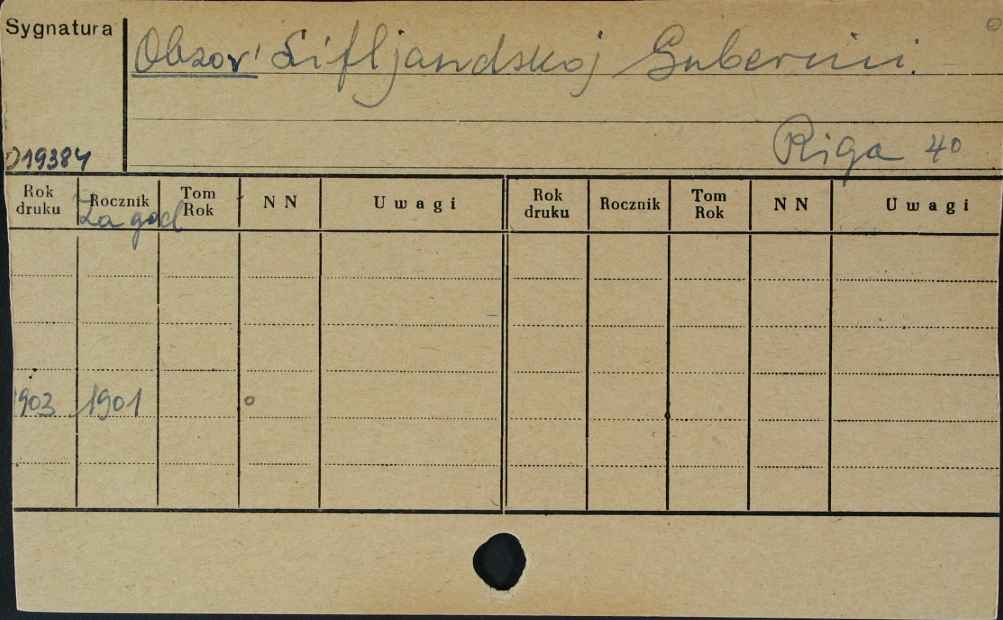 Sygnatura
Obzor' Lifljandskoj Gubernii.
Riga 40
019384
Rok druku Rocznik Tom Rok NN Uwagi Rok druku Rocznik Tom Rok NN Uwagi
Za god
1903 1901